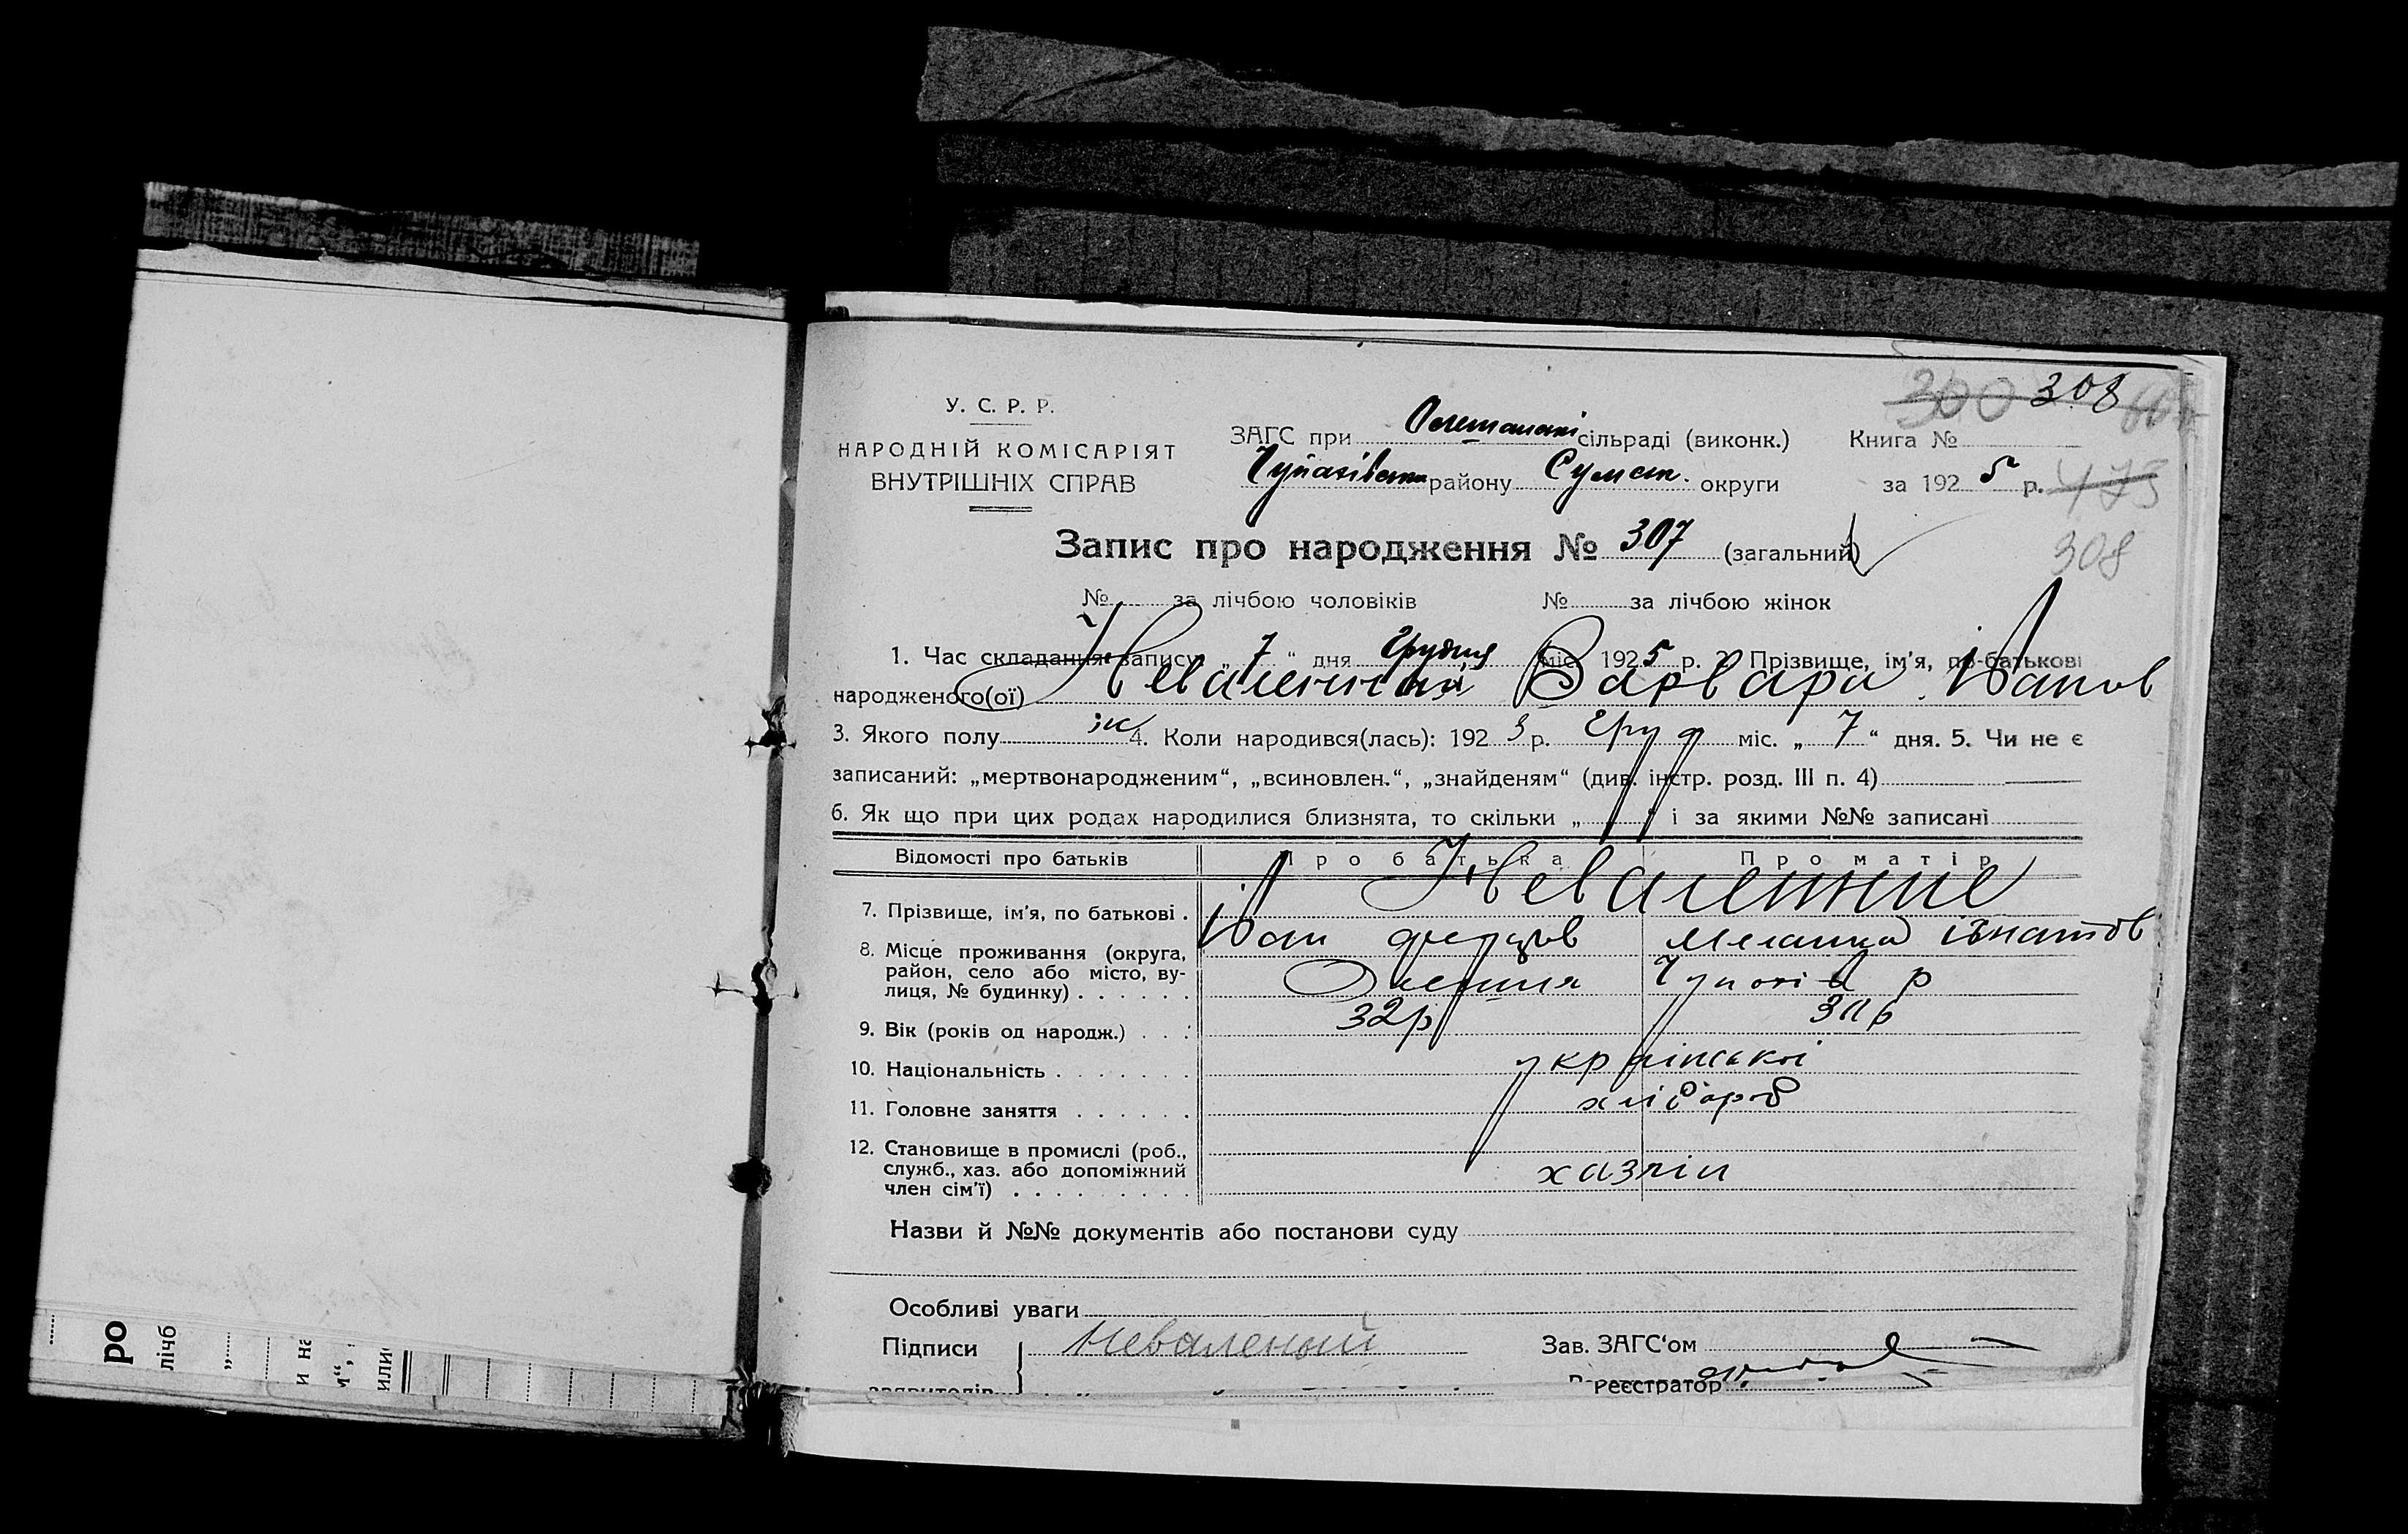 300 308
У. С. Р. Р.
НАРОДНІЙ КОМІСАРІЯТ
ВНУТРІШНІХ СПРАВ
ЗАГС при сільраді (виконк.) Книга №
Чупахівськ району Сумськ. округи за 1925 р. 473
Запис про народження № 307 (загальний)
308
№ за лічбою чоловіків № за лічбою жінок
1. Час складання запису „ 7 “ дня Грудня міс. 1925 р. 2. Прізвище, ім'я, по-батькові
народженого(ої) Неваленная Варвара Иванов
3. Якого полу ж 4. Коли народився(лась): 1923 р. Груд міс. „ 7 “ дня. 5. Чи не є
записаний: „мертвонародженим“, „всиновлен.“, „знайденям“ (див. інстр. розд. III п. 4)
6. Як що при цих родах народилися близнята, то скільки „ “ і за якими №№ записані
Відомості про батьків Про батька Про матір
7. Прізвище, ім'я, по батькові . Неваленние
Иван федоров Меланка ігнатов
8. Місце проживання (округа,
район, село або місто, ву-
лиця, № будинку) . . . . . . Олешня Чупахів р
9. Вік (років од народж.) . . . 32р 30р
10. Національність . . . . . . . української
11. Головне заняття . . . . . . хлібороб
12. Становище в промислі (роб.,
служб., хаз. або допоміжний
член сім'ї) . . . . . . . . . хазяін
Назви й №№ документів або постанови суду
Особливі уваги
Підписи Неваленый Зав. ЗАГС'ом
заявителів Реєстратор
ро
лічб
„
и на
м“,
или